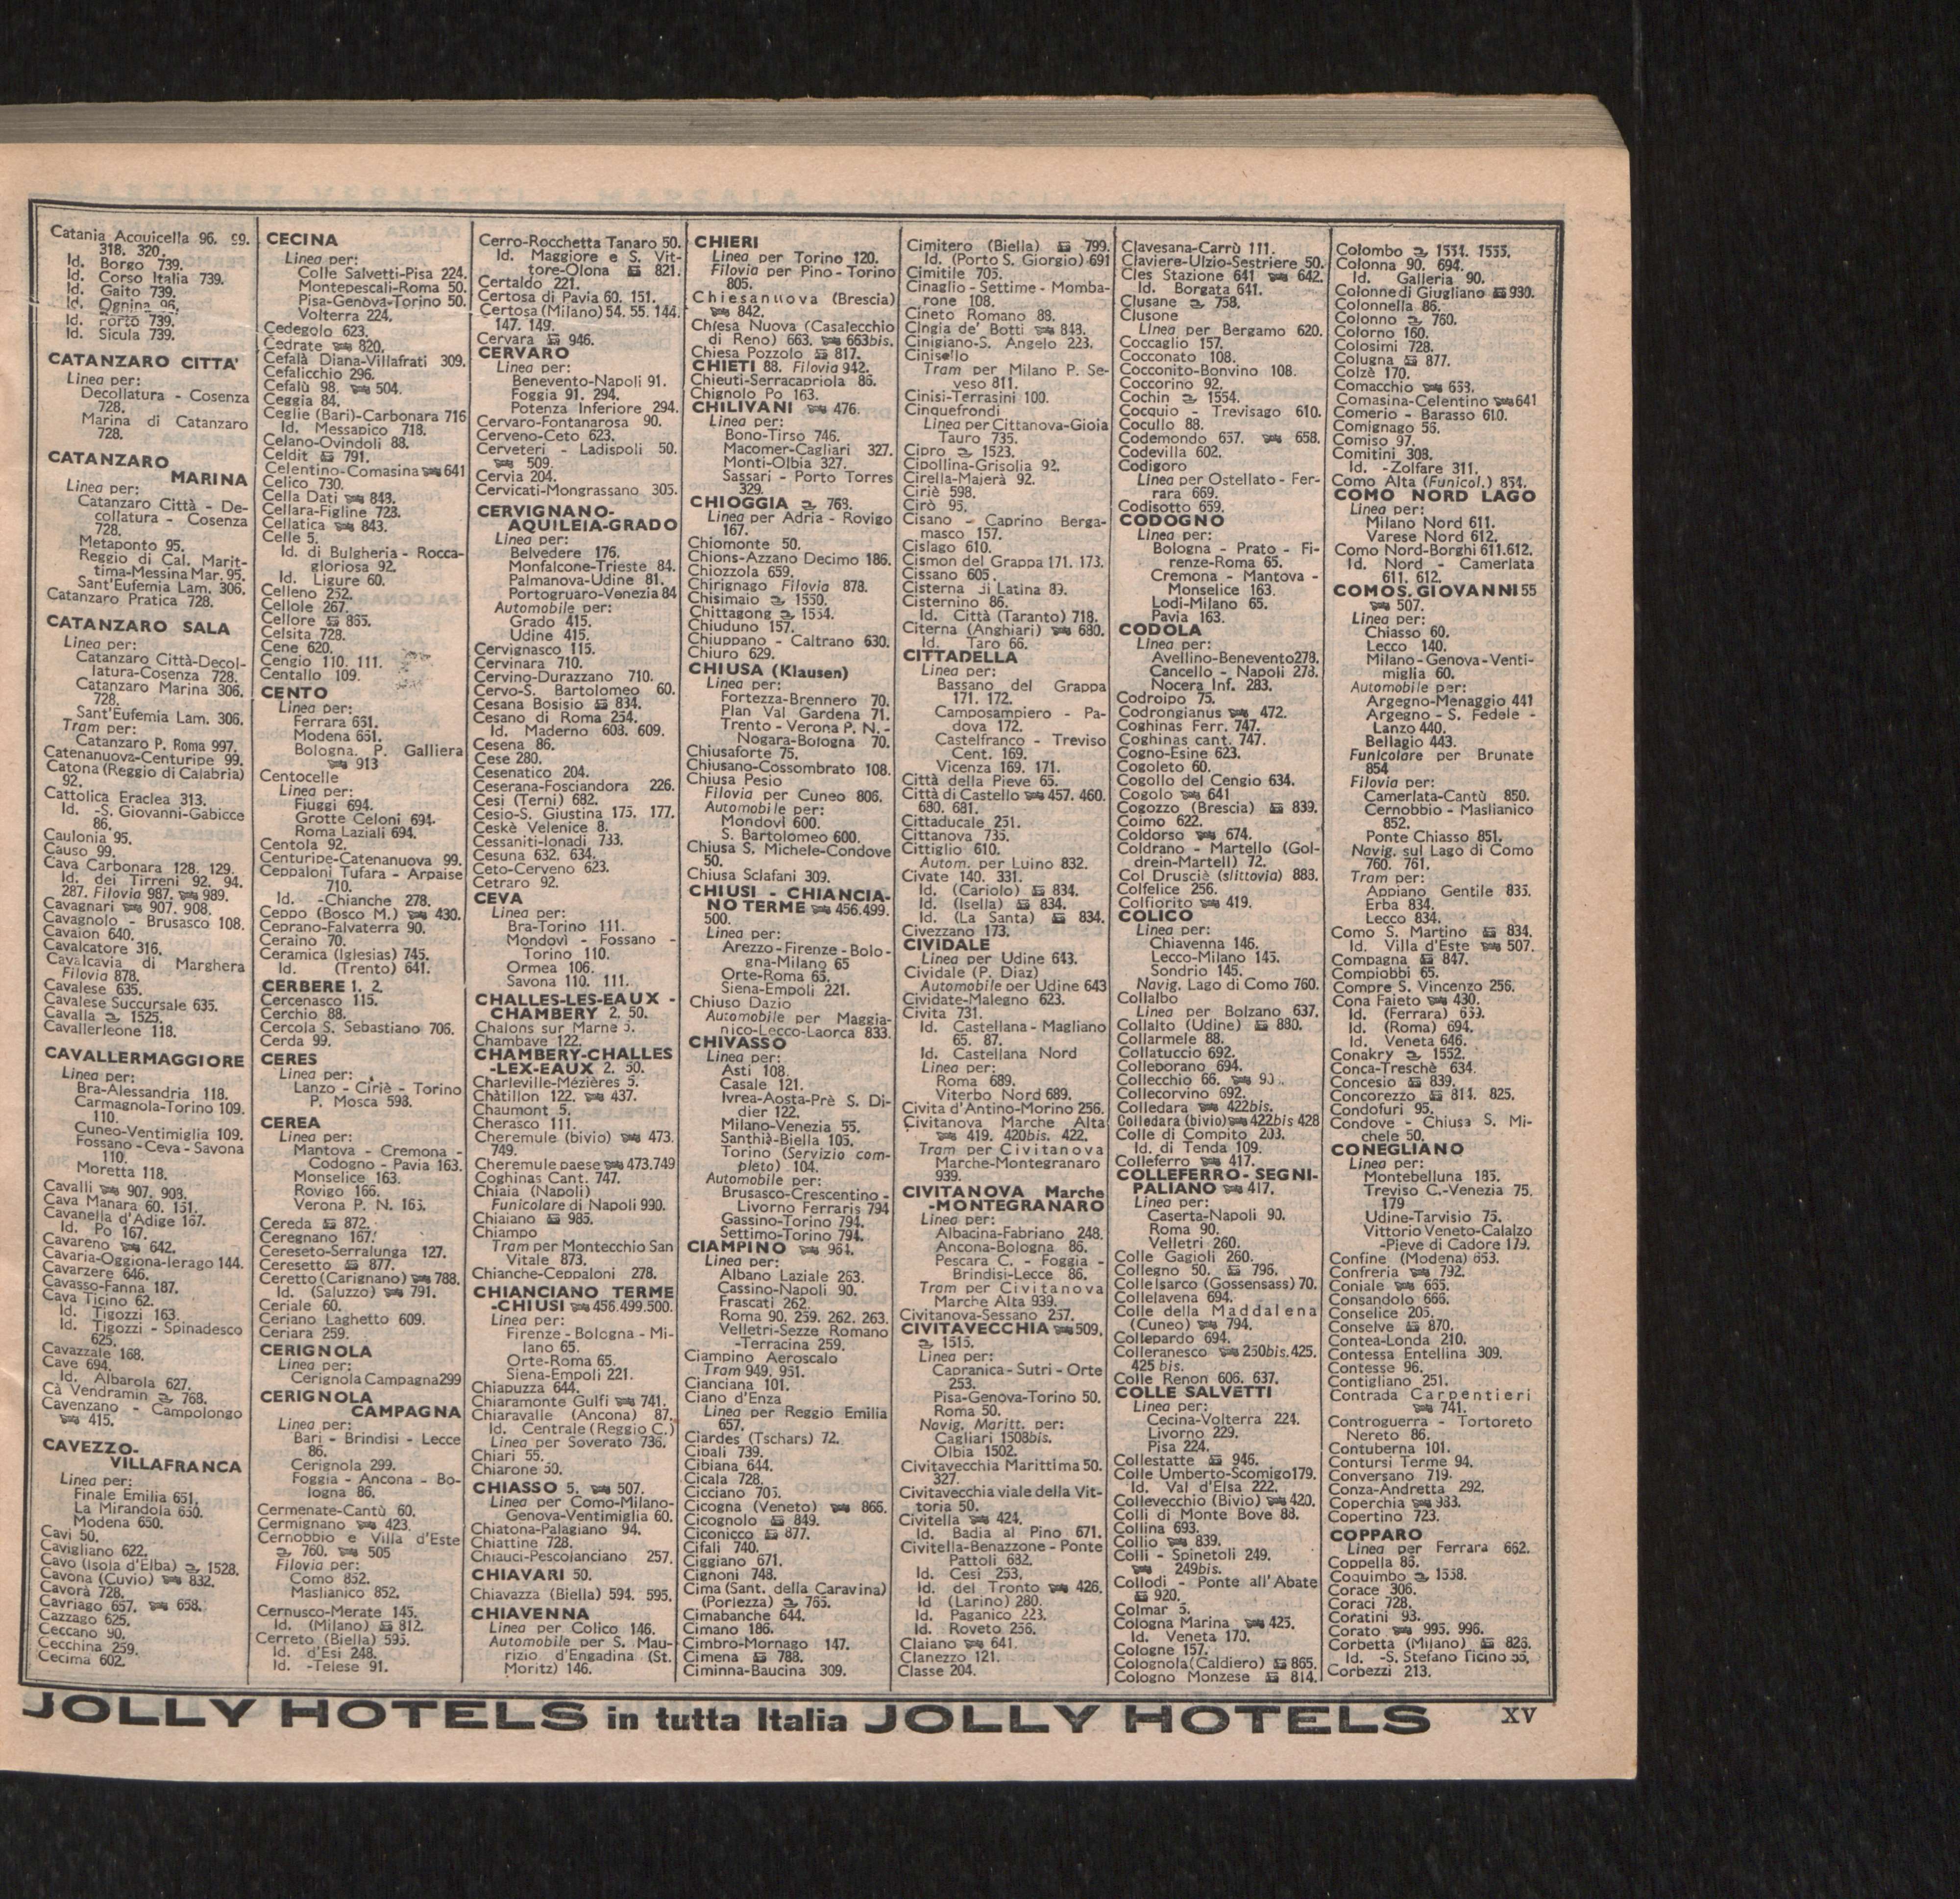 Catania Acquicella 96. 99.
318. 320.
Id. Borgo 739.
Id. Corso Italia 739.
Id. Gaito 739.
Id. Ognina 96.
Id. Porto 739.
Id. Sicula 739.
CATANZARO CITTA'
Linea per:
Decollatura - Cosenza
728.
Marina di Catanzaro
728.
CATANZARO
MARINA
Linea per:
Catanzaro Città - De-
collatura - Cosenza
728.
Metaponto 95.
Reggio di Cal. Marit-
tima-Messina Mar. 95.
Sant'Eufemia Lam. 306.
Catanzaro Pratica 728.
CATANZARO SALA
Linea per:
Catanzaro Città-Decol-
latura-Cosenza 728.
Catanzaro Marina 306.
728.
Sant'Eufemia Lam. 306.
Tram per:
Catanzaro P. Roma 997.
Catenanuova-Centuripe 99.
Catona (Reggio di Calabria)
92.
Cattolica Eraclea 313.
Id. -S. Giovanni-Gabicce
86.
Caulonia 95.
Causo 99.
Cava Carbonara 128. 129.
Id. dei Tirreni 92. 94.
287. Filovia 987. 989.
Cavagnari 907. 908.
Cavagnolo - Brusasco 108.
Cavaion 640.
Cavalcatore 316.
Cavalcavia di Marghera
Filovia 878.
Cavalese 635.
Cavalese Succursale 635.
Cavalla 1525.
Cavallerleone 118.
CAVALLERMAGGIORE
Linea per:
Bra-Alessandria 118.
Carmagnola-Torino 109.
110.
Cuneo-Ventimiglia 109.
Fossano - Ceva - Savona
110.
Moretta 118.
Cavalli 907. 908.
Cava Manara 60. 151.
Cavanella d'Adige 167.
Id. Po 167.
Cavareno 642.
Cavaria-Oggiona-Ierago 144.
Cavarzere 646.
Cavasso-Fanna 187.
Cava Ticino 62.
Id. Tigozzi 163.
Id. Tigozzi - Spinadesco
625.
Cavazzale 168.
Cave 694.
Id. Albarola 627.
Cà Vendramin 768.
Cavenzano - Campolongo
415.
CAVEZZO-
VILLAFRANCA
Linea per:
Finale Emilia 651.
La Mirandola 650.
Modena 650.
Cavi 50.
Cavigliano 622.
Cavo (Isola d'Elba) 1528.
Cavona (Cuvio) 832.
Cavorà 728.
Cavriago 657. 658.
Cazzago 625.
Ceccano 90.
Cecchina 259.
Cecima 602.
CECINA
Linea per:
Colle Salvetti-Pisa 224.
Montepescali-Roma 50.
Pisa-Genova-Torino 50.
Volterra 224.
Cedegolo 623.
Cedrate 820.
Cefalà Diana-Villafrati 309.
Cefalicchio 296.
Cefalù 98. 504.
Ceggia 84.
Ceglie (Bari)-Carbonara 716
Id. Messapico 718.
Celano-Ovindoli 88.
Celdit 791.
Celentino-Comasina 641
Celico 730.
Cella Dati 848.
Cellara-Figline 723.
Cellatica 843.
Celle 5.
Id. di Bulgheria - Rocca-
gloriosa 92.
Id. Ligure 60.
Celleno 252.
Cellole 267.
Cellore 865.
Celsita 728.
Cene 620.
Cengio 110. 111.
Centallo 109.
CENTO
Linea per:
Ferrara 651.
Modena 651.
Bologna. P. Galliera
913
Centocelle
Linea per:
Fiuggi 694.
Grotte Celoni 694.
Roma Laziali 694.
Centola 92.
Centuripe-Catenanuova 99.
Ceppaloni Tufara - Arpaise
710.
Id. -Chianche 278.
Ceppo (Bosco M.) 430.
Ceprano-Falvaterra 90.
Ceraino 70.
Ceramica (Iglesias) 745.
Id. (Trento) 641.
CERBERE 1. 2.
Cercenasco 115.
Cerchio 88.
Cercola S. Sebastiano 706.
Cerda 99.
CERES
Linea per:
Lanzo - Ciriè - Torino
P. Mosca 598.
CEREA
Linea per:
Mantova - Cremona -
Codogno - Pavia 163.
Monselice 163.
Rovigo 166.
Verona P. N. 165.
Cereda 872.
Ceregnano 167.
Cereseto-Serralunga 127.
Ceresetto 877.
Ceretto (Carignano) 788.
Id. (Saluzzo) 791.
Ceriale 60.
Ceriano Laghetto 609.
Ceriara 259.
CERIGNOLA
Linea per:
Cerignola Campagna 299
CERIGNOLA
CAMPAGNA
Linea per:
Bari - Brindisi - Lecce
86.
Cerignola 299.
Foggia - Ancona - Bo-
logna 86.
Cermenate-Cantù 60.
Cermignano 423.
Cernobbio e Villa d'Este
760. 505
Filovia per:
Como 852.
Maslianico 852.
Cernusco-Merate 145.
Id. (Milano) 812.
Cerreto (Biella) 595.
Id. d'Esi 248.
Id. -Telese 91.
Cerro-Rocchetta Tanaro 50.
Id. Maggiore e S. Vit-
tore-Olona 821.
Certaldo 221.
Certosa di Pavia 60. 151.
Certosa (Milano) 54. 55. 144.
147. 149.
Cervara 946.
CERVARO
Linea per:
Benevento-Napoli 91.
Foggia 91. 294.
Potenza Inferiore 294.
Cervaro-Fontanarosa 90.
Cerveno-Ceto 623.
Cerveteri - Ladispoli 50.
509.
Cervia 204.
Cervicati-Mongrassano 305.
CERVIGNANO-
AQUILEIA-GRADO
Linea per:
Belvedere 176.
Monfalcone-Trieste 84.
Palmanova-Udine 81.
Portogruaro-Venezia 84
Automobile per:
Grado 415.
Udine 415.
Cervignasco 115.
Cervinara 710.
Cervino-Durazzano 710.
Cervo-S. Bartolomeo 60.
Cesana Bosisio 834.
Cesano di Roma 254.
Id. Maderno 608. 609.
Cesena 86.
Cese 280.
Cesenatico 204.
Ceserana-Fosciandora 226.
Cesi (Terni) 682.
Cesio-S. Giustina 175. 177.
Ceskè Velenice 8.
Cessaniti-Ionadi 733.
Cesuna 632. 634.
Ceto-Cerveno 623.
Cetraro 92.
CEVA
Linea per:
Bra-Torino 111.
Mondovì - Fossano -
Torino 110.
Ormea 106.
Savona 110. 111.
CHALLES-LES-EAUX -
CHAMBERY 2. 50.
Chalons sur Marne 5.
Chambave 122.
CHAMBERY-CHALLES
-LEX-EAUX 2. 50.
Charleville-Mézières 5.
Châtillon 122. 437.
Chaumont 5.
Cherasco 111.
Cheremule (bivio) 473.
749.
Cheremule paese 473.749
Coghinas Cant. 747.
Chiaia (Napoli)
Funicolare di Napoli 990.
Chiaiano 985.
Chiampo
Tram per Montecchio San
Vitale 873.
Chianche-Ceppaloni 278.
CHIANCIANO TERME
-CHIUSI 456.499.500.
Linea per:
Firenze - Bologna - Mi-
lano 65.
Orte-Roma 65.
Siena-Empoli 221.
Chiapuzza 644.
Chiaramonte Gulfi 741.
Chiaravalle (Ancona) 87.
Id. Centrale (Reggio C.)
Linea per Soverato 736.
Chiari 55.
Chiarone 50.
CHIASSO 5. 507.
Linea per Como-Milano-
Genova-Ventimiglia 60.
Chiatona-Palagiano 94.
Chiattine 728.
Chiauci-Pescolanciano 257.
CHIAVARI 50.
Chiavazza (Biella) 594. 595.
CHIAVENNA
Linea per Colico 146.
Automobile per S. Mau-
rizio d'Engadina (St.
Moritz) 146.
CHIERI
Linea per Torino 120.
Filovia per Pino - Torino
805.
Chiesanuova (Brescia)
842.
Chiesa Nuova (Casalecchio
di Reno) 663. 663bis.
Chiesa Pozzolo 817.
CHIETI 88. Filovia 942.
Chieuti-Serracapriola 86.
Chignolo Po 163.
CHILIVANI 476.
Linea per:
Bono-Tirso 746.
Macomer-Cagliari 327.
Monti-Olbia 327.
Sassari - Porto Torres
329.
CHIOGGIA 768.
Linea per Adria - Rovigo
167.
Chiomonte 50.
Chions-Azzano Decimo 186.
Chiozzola 659.
Chirignago Filovia 878.
Chisimaio 1550.
Chittagong 1554.
Chiuduno 157.
Chiuppano - Caltrano 630.
Chiuro 629.
CHIUSA (Klausen)
Linea per:
Fortezza-Brennero 70.
Plan Val Gardena 71.
Trento - Verona P. N. -
Nogara-Bologna 70.
Chiusaforte 75.
Chiusano-Cossombrato 108.
Chiusa Pesio
Filovia per Cuneo 806.
Automobile per:
Mondovì 600.
S. Bartolomeo 600.
Chiusa S. Michele-Condove
50.
Chiusa Sclafani 309.
CHIUSI - CHIANCIA-
NO TERME 456.499.
500.
Linea per:
Arezzo - Firenze - Bolo-
gna-Milano 65
Orte-Roma 65.
Siena-Empoli 221.
Chiuso Dazio
Automobile per Maggia-
nico-Lecco-Laorca 833.
CHIVASSO
Linea per:
Asti 108.
Casale 121.
Ivrea-Aosta-Prè S. Di-
dier 122.
Milano-Venezia 55.
Santhià-Biella 105.
Torino (Servizio com-
pleto) 104.
Automobile per:
Brusasco-Crescentino -
Livorno Ferraris 794
Gassino-Torino 794.
Settimo-Torino 794.
CIAMPINO 961.
Linea per:
Albano Laziale 263.
Cassino-Napoli 90.
Frascati 262.
Roma 90. 259. 262. 263.
Velletri-Sezze Romano
-Terracina 259.
Ciampino Aeroscalo
Tram 949. 951.
Cianciana 101.
Ciano d'Enza
Linea per Reggio Emilia
657.
Ciardes (Tschars) 72.
Cibali 739.
Cibiana 644.
Cicala 728.
Cicciano 705.
Cicogna (Veneto) 866.
Cicognolo 849.
Ciconicco 877.
Cifali 740.
Ciggiano 671.
Cignoni 748.
Cima (Sant. della Caravina)
(Porlezza) 765.
Cimabanche 644.
Cimano 186.
Cimbro-Mornago 147.
Cimena 788.
Ciminna-Baucina 309.
Cimitero (Biella) 799.
Id. (Porto S. Giorgio) 691
Cimitile 705.
Cinaglio - Settime - Momba-
rone 108.
Cineto Romano 88.
Cingia de' Botti 848.
Cinigiano-S. Angelo 223.
Cinisello
Tram per Milano P. Se-
veso 811.
Cinisi-Terrasini 100.
Cinquefrondi
Linea per Cittanova-Gioia
Tauro 735.
Cipro 1523.
Cipollina-Grisolia 92.
Cirella-Majerà 92.
Ciriè 598.
Cirò 95.
Cisano - Caprino Berga-
masco 157.
Cislago 610.
Cismon del Grappa 171. 173.
Cissano 605.
Cisterna di Latina 89.
Cisternino 86.
Id. Città (Taranto) 718.
Citerna (Anghiari) 680.
Id. Taro 66.
CITTADELLA
Linea per:
Bassano del Grappa
171. 172.
Camposampiero - Pa-
dova 172.
Castelfranco - Treviso
Cent. 169.
Vicenza 169. 171.
Città della Pieve 65.
Città di Castello 457. 460.
680. 681.
Cittaducale 251.
Cittanova 735.
Cittiglio 610.
Autom. per Luino 832.
Civate 140. 331.
Id. (Cariolo) 834.
Id. (Isella) 834.
Id. (La Santa) 834.
Civezzano 173.
CIVIDALE
Linea per Udine 643.
Cividale (P. Diaz)
Automobile per Udine 643
Cividate-Malegno 623.
Civita 731.
Id. Castellana - Magliano
65. 87.
Id. Castellana Nord
Linea per:
Roma 689.
Viterbo Nord 689.
Civita d'Antino-Morino 256.
Civitanova Marche Alta
419. 420bis. 422.
Tram per Civitanova
Marche-Montegranaro
939.
CIVITANOVA Marche
-MONTEGRANARO
Linea per:
Albacina-Fabriano 248.
Ancona-Bologna 86.
Pescara C. - Foggia -
Brindisi-Lecce 86.
Tram per Civitanova
Marche Alta 939.
Civitanova-Sessano 257.
CIVITAVECCHIA 509.
1515.
Linea per:
Capranica - Sutri - Orte
253.
Pisa-Genova-Torino 50.
Roma 50.
Navig. Maritt. per:
Cagliari 1508bis.
Olbia 1502.
Civitavecchia Marittima 50.
327.
Civitavecchia viale della Vit-
toria 50.
Civitella 424.
Id. Badia al Pino 671.
Civitella-Benazzone - Ponte
Pattoli 682.
Id. Cesi 253.
Id. del Tronto 426.
Id (Larino) 280.
Id. Paganico 223.
Id. Roveto 256.
Claiano 641.
Clanezzo 121.
Classe 204.
Clavesana-Carrù 111.
Claviere-Ulzio-Sestriere 50.
Cles Stazione 641 642.
Id. Borgata 641.
Clusane 758.
Clusone
Linea per Bergamo 620.
Coccaglio 157.
Cocconato 108.
Cocconito-Bonvino 108.
Coccorino 92.
Cochin 1554.
Cocquio - Trevisago 610.
Cocullo 88.
Codemondo 657. 658.
Codevilla 602.
Codigoro
Linea per Ostellato - Fer-
rara 669.
Codisotto 659.
CODOGNO
Linea per:
Bologna - Prato - Fi-
renze-Roma 65.
Cremona - Mantova -
Monselice 163.
Lodi-Milano 65.
Pavia 163.
CODOLA
Linea per:
Avellino-Benevento 278.
Cancello - Napoli 278.
Nocera Inf. 283.
Codroipo 75.
Codrongianus 472.
Coghinas Ferr. 747.
Coghinas cant. 747.
Cogno-Esine 623.
Cogoleto 60.
Cogollo del Cengio 634.
Cogolo 641
Cogozzo (Brescia) 839.
Coimo 622.
Coldorso 674.
Coldrano - Martello (Gol-
drein-Martell) 72.
Col Drusciè (slittovia) 883.
Colfelice 256.
Colfiorito 419.
COLICO
Linea per:
Chiavenna 146.
Lecco-Milano 145.
Sondrio 145.
Navig. Lago di Como 760.
Collalbo
Linea per Bolzano 637.
Collalto (Udine) 880.
Collarmele 88.
Collatuccio 692.
Colleborano 694.
Collecchio 66.
Collecorvino 692.
Colledara 422bis.
Colledara (bivio) 422bis 428
Colle di Compito 203.
Id. di Tenda 109.
Colleferro 417.
COLLEFERRO - SEGNI-
PALIANO 417.
Linea per:
Caserta-Napoli 90.
Roma 90.
Velletri 260.
Colle Gagioli 260.
Collegno 50. 796.
Colle Isarco (Gossensass) 70.
Collelavena 694.
Colle della Maddalena
(Cuneo) 794.
Collepardo 694.
Colleranesco 250bis.425.
425 bis.
Colle Renon 606. 637.
COLLE SALVETTI
Linea per:
Cecina-Volterra 224.
Livorno 229.
Pisa 224.
Collestatte 946.
Colle Umberto-Scomigo 179.
Id. Val d'Elsa 222.
Collevecchio (Bivio) 420.
Colli di Monte Bove 88.
Collina 693.
Collio 839.
Colli - Spinetoli 249.
249bis.
Collodi - Ponte all'Abate
920.
Colmar 5.
Cologna Marina 425.
Id. Veneta 170.
Cologne 157.
Colognola (Caldiero) 865.
Cologno Monzese 814.
Colombo 1554. 1555.
Colonna 90. 694.
Id. Galleria 90.
Colonne di Giugliano 930.
Colonnella 86.
Colonno 760.
Colorno 160.
Colosimi 728.
Colugna 877.
Colzè 170.
Comacchio 653.
Comasina-Celentino 641
Comerio - Barasso 610.
Comignago 56.
Comiso 97.
Comitini 308.
Id. -Zolfare 311.
Como Alta (Funicol.) 854.
COMO NORD LAGO
Linea per:
Milano Nord 611.
Varese Nord 612.
Como Nord-Borghi 611.612.
Id. Nord - Camerlata
611. 612.
COMO S. GIOVANNI 55
507.
Linea per:
Chiasso 60.
Lecco 140.
Milano - Genova - Venti-
miglia 60.
Automobile per:
Argegno-Menaggio 441
Argegno - S. Fedele -
Lanzo 440.
Bellagio 443.
Funicolare per Brunate
854
Filovia per:
Camerlata-Cantù 850.
Cernobbio - Maslianico
852.
Ponte Chiasso 851.
Navig. sul Lago di Como
760. 761.
Tram per:
Appiano Gentile 835.
Erba 834.
Lecco 834.
Como S. Martino 834.
Id. Villa d'Este 507.
Compagna 847.
Compiobbi 65.
Compre S. Vincenzo 256.
Cona Faieto 430.
Id. (Ferrara) 653.
Id. (Roma) 694.
Id. Veneta 646.
Conakry 1552.
Conca-Treschè 634.
Concesio 839.
Concorezzo 814. 825.
Condofuri 95.
Condove - Chiusa S. Mi-
chele 50.
CONEGLIANO
Linea per:
Montebelluna 185.
Treviso C.-Venezia 75.
179
Udine-Tarvisio 75.
Vittorio Veneto-Calalzo
-Pieve di Cadore 179.
Confine (Modena) 653.
Confreria 792.
Coniale 665.
Consandolo 666.
Conselice 205.
Conselve 870.
Contea-Londa 210.
Contessa Entellina 309.
Contesse 96.
Contigliano 251.
Contrada Carpentieri
741.
Controguerra - Tortoreto
Nereto 86.
Contuberna 101.
Contursi Terme 94.
Conversano 719.
Conza-Andretta 292.
Coperchia 983.
Copertino 723.
COPPARO
Linea per Ferrara 662.
Coppella 86.
Coquimbo 1558.
Corace 306.
Coraci 728.
Coratini 93.
Corato 995. 996.
Corbetta (Milano) 826.
Id. -S. Stefano Ticino 55.
Corbezzi 213.
JOLLY HOTELS in tutta Italia JOLLY HOTELS XV